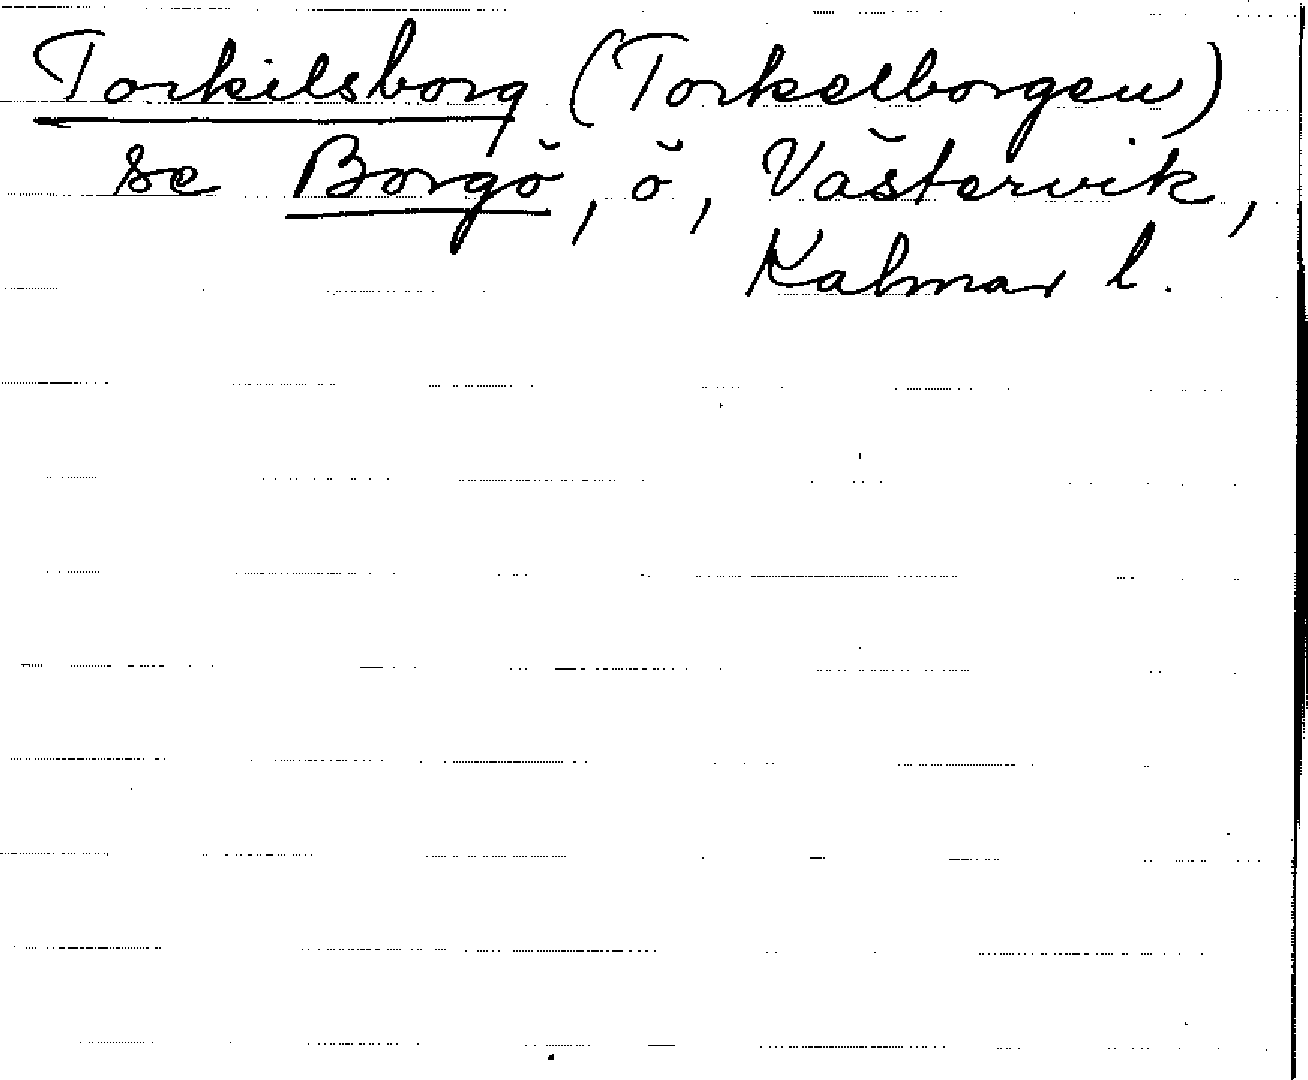 Torkilsborg (Torkelborgen)
se Borgö, ö, Västervik,
Kalmar l.